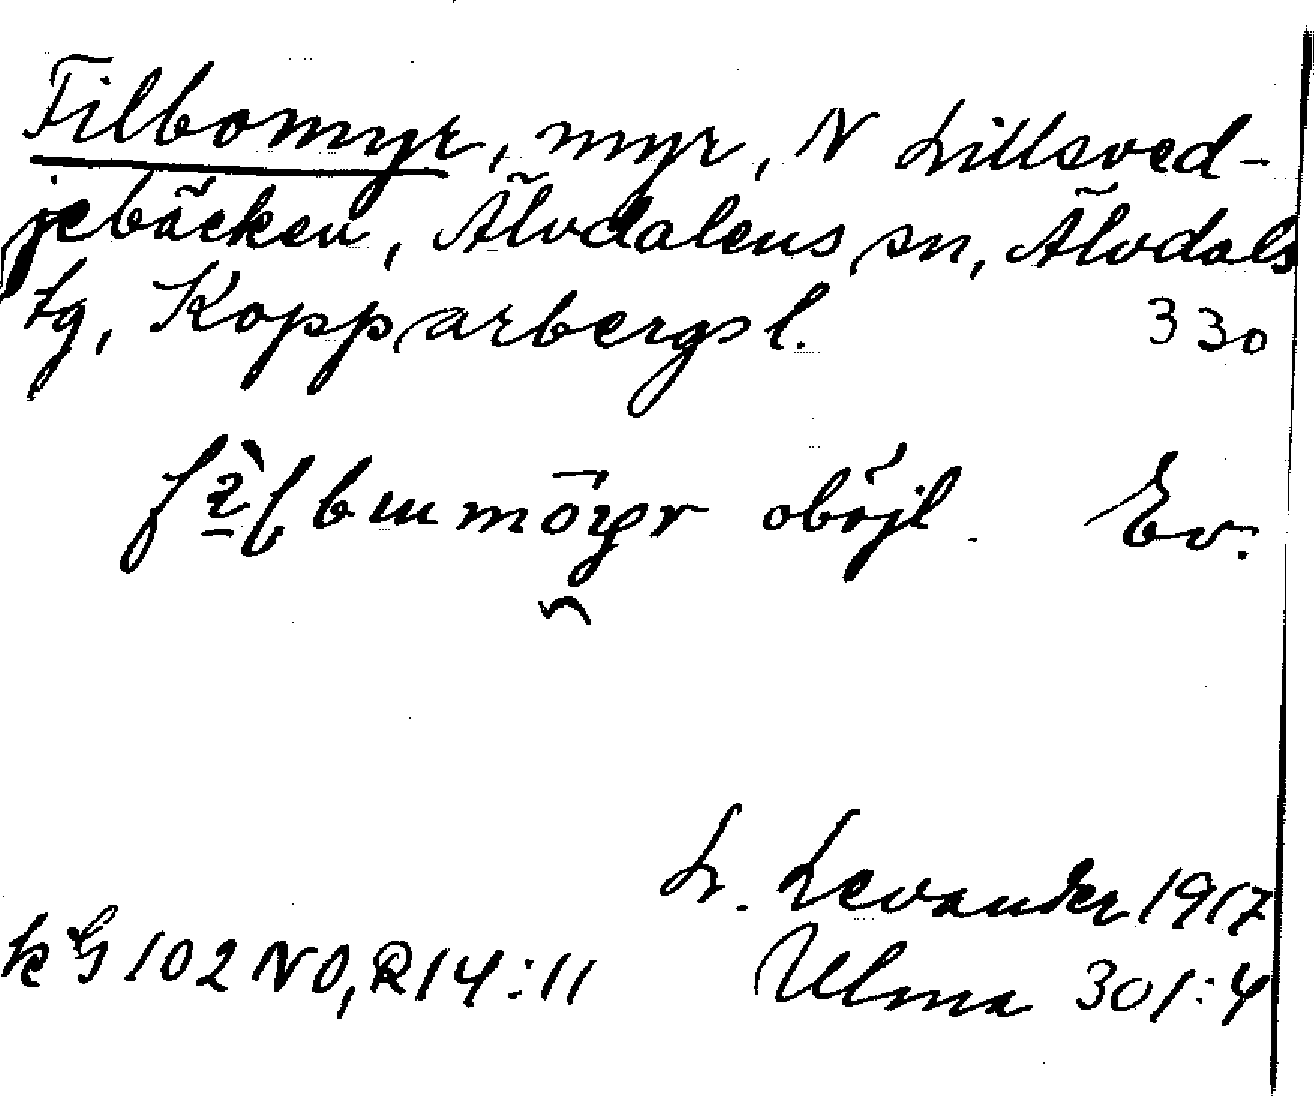 Filbomyr, myr, N Lillsved-
jebäcken, Älvdalens sn, Älvdals
tg, Kopparbergs l. 330
oböjl. Ev.
L. Levander 1917
kG 102 NO, R14:11 Ulma 301:4